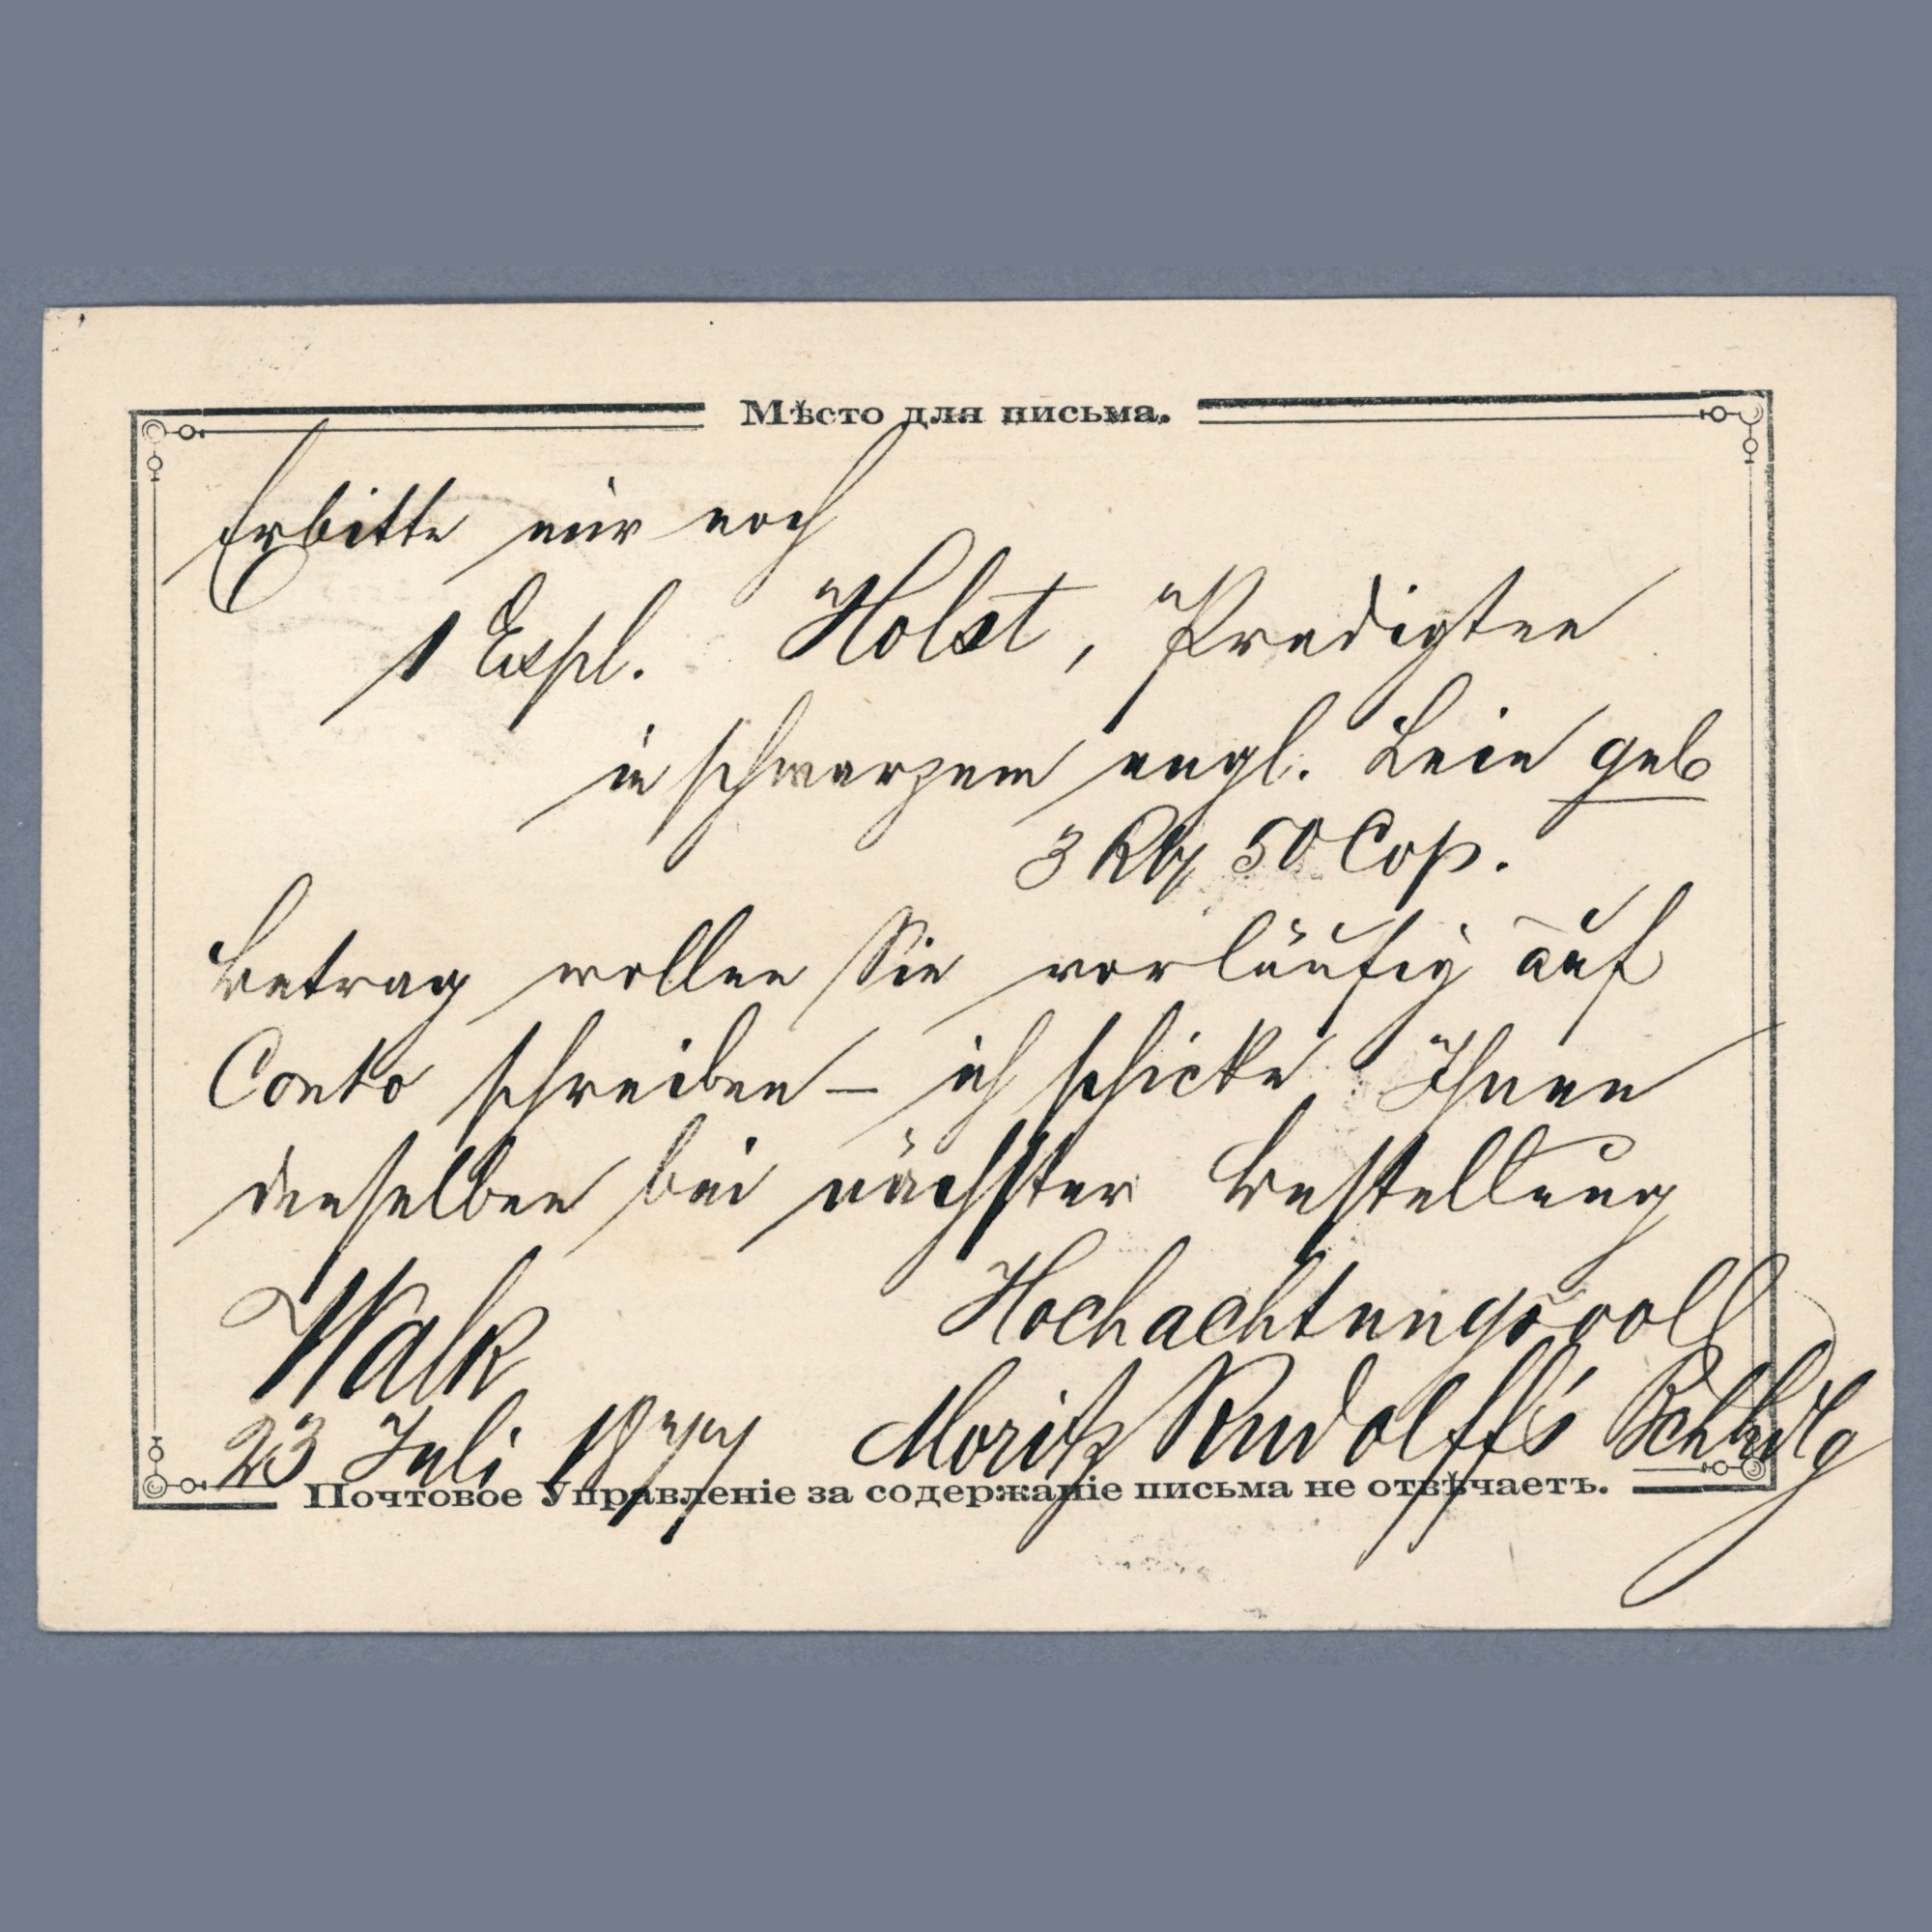 Мѣсто для письма.
Erbitte mir noch
1 Expl. Holst, Predigten
in schwarzem engl. Lein geb
3 Rbl 50 Cop.
Betrag wollen Sie vorläufig auf
Conto schreiben – ich schicke Ihnen
denselben bei nächster Bestellung
Walk Hochachtungsvoll
23 Juli 1877 Moritz Rudolff's Bchhdlg
Почтовое Управленіе за содержаніе письма не отвѣчаетъ.